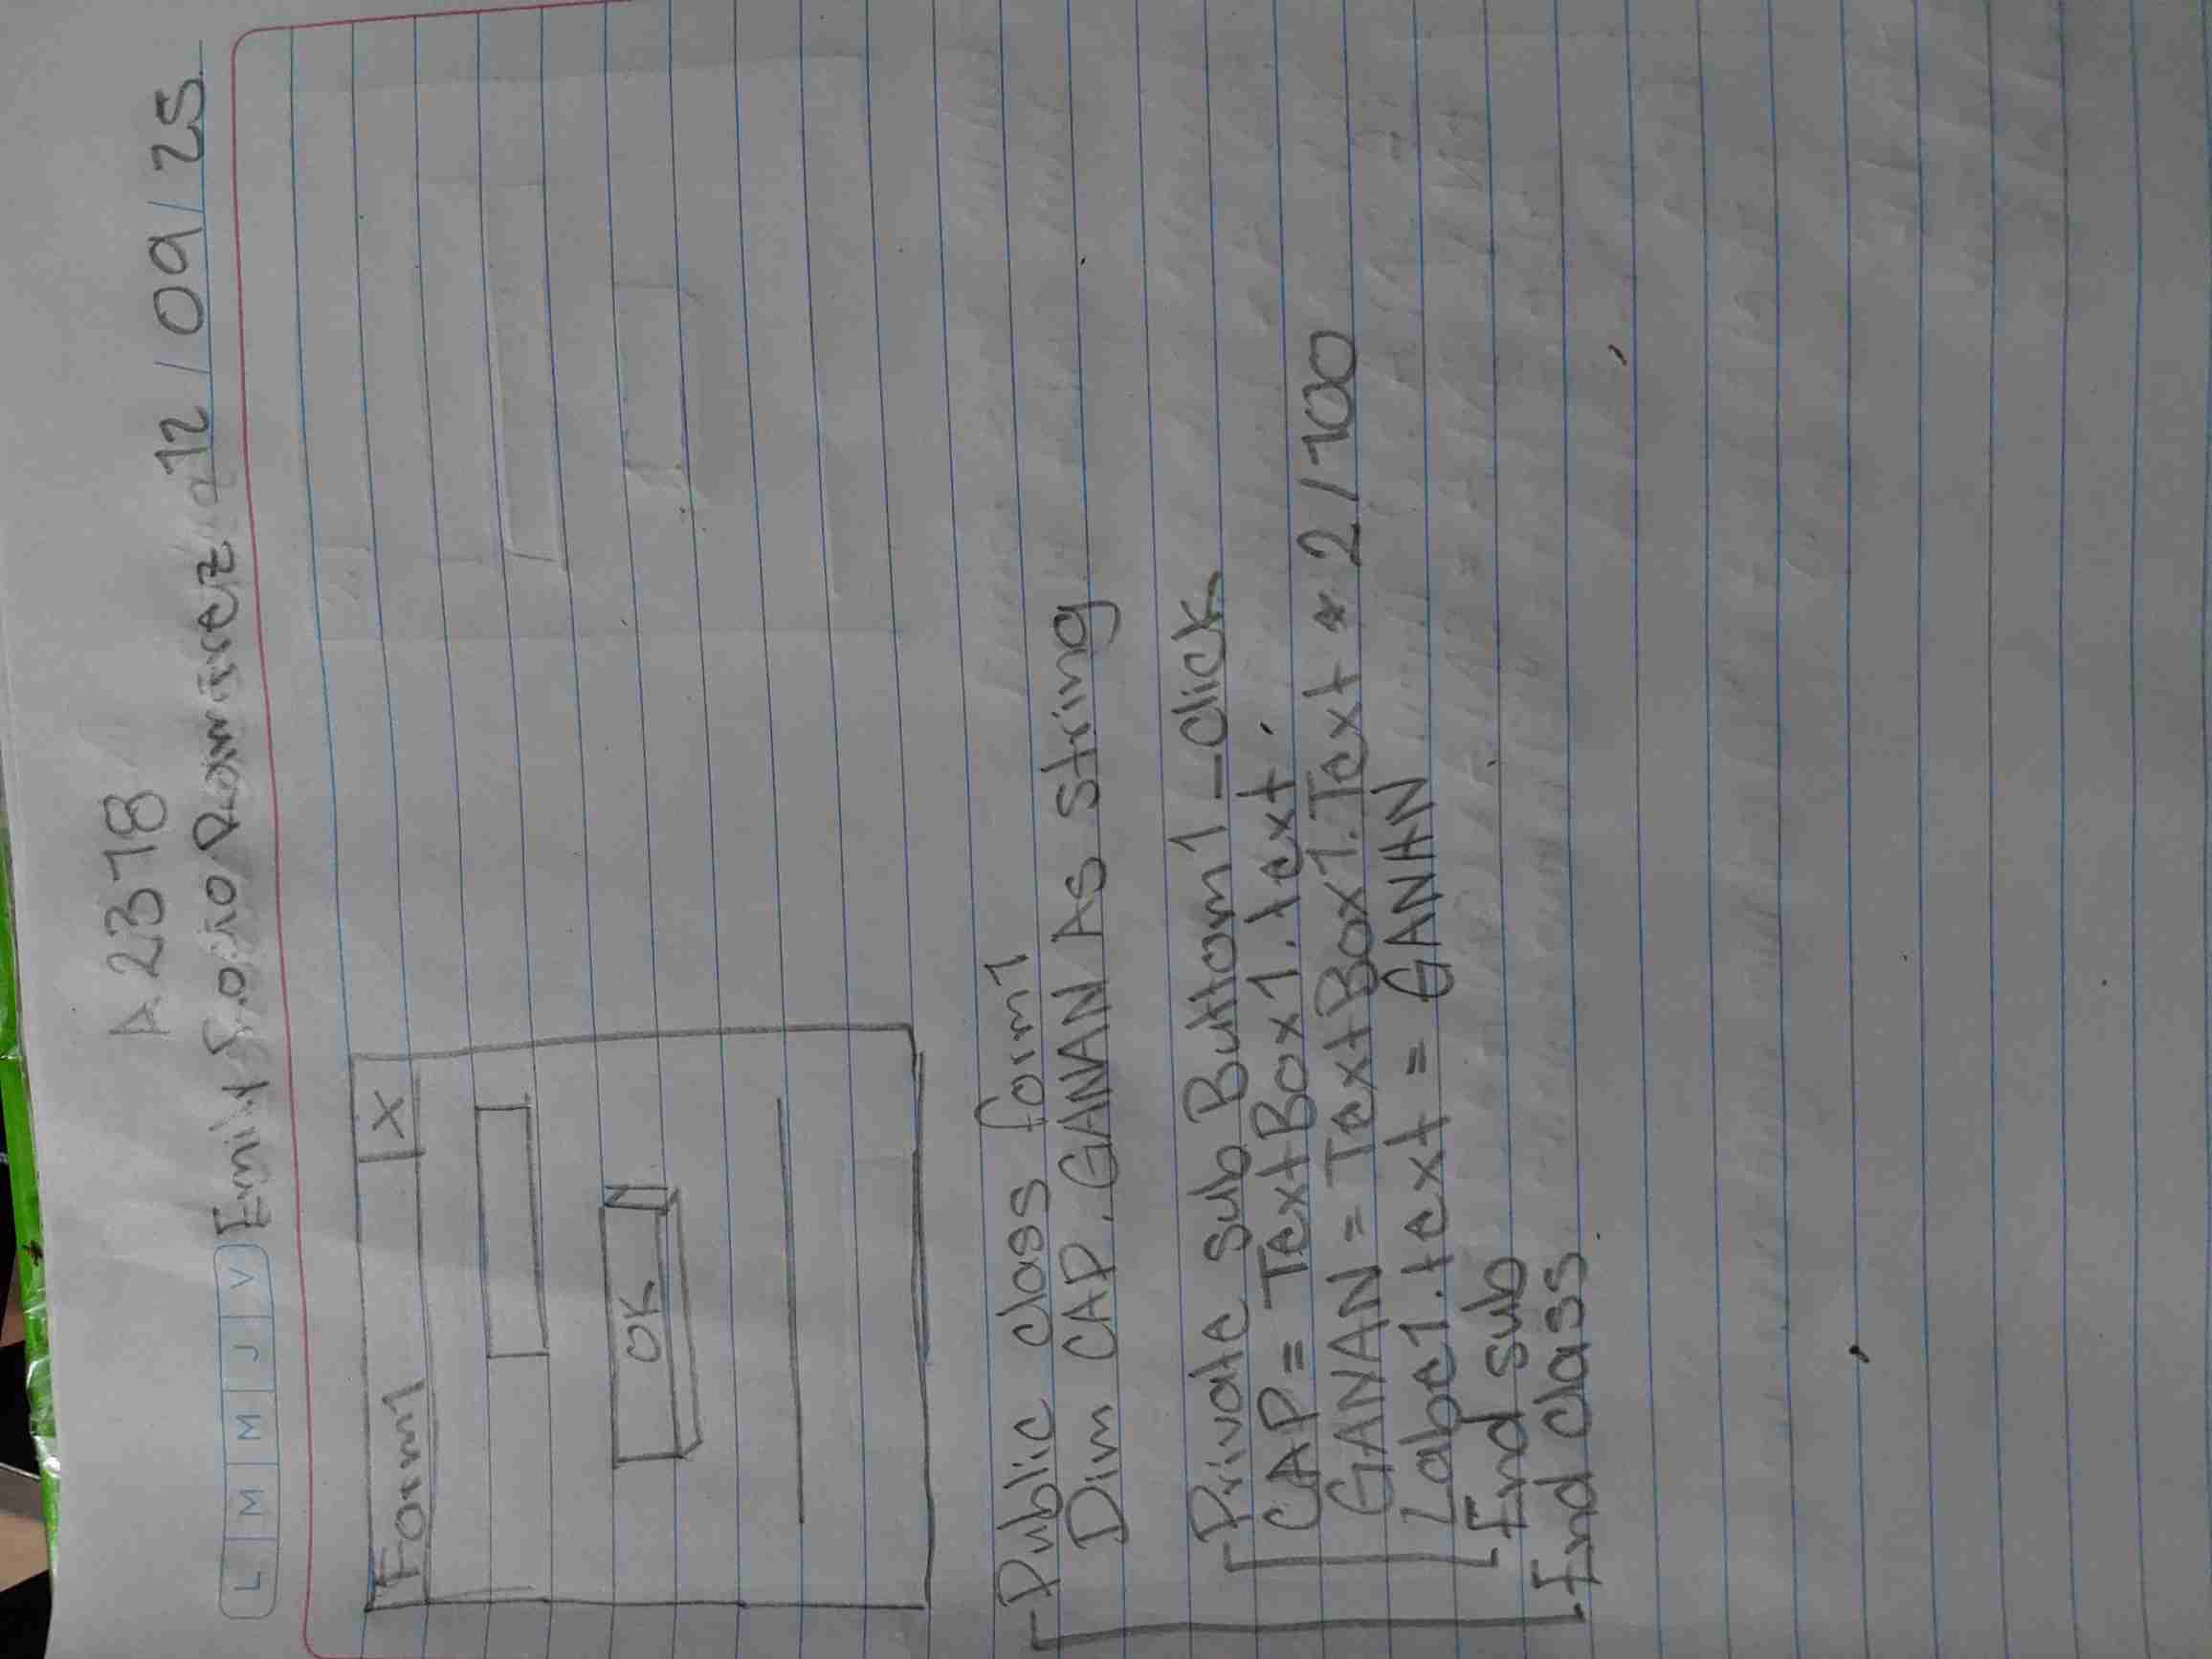 A 2318
L M M J V Emily Ramirez 12/09/25
Form1 X
OK
Public class form1
Dim CAP, GANAN As String
Private sub Buttom1_click
CAP = TextBox1.text
GANAN = TextBox1.Text * 2/100
Label1.text = GANAN
End sub
End class